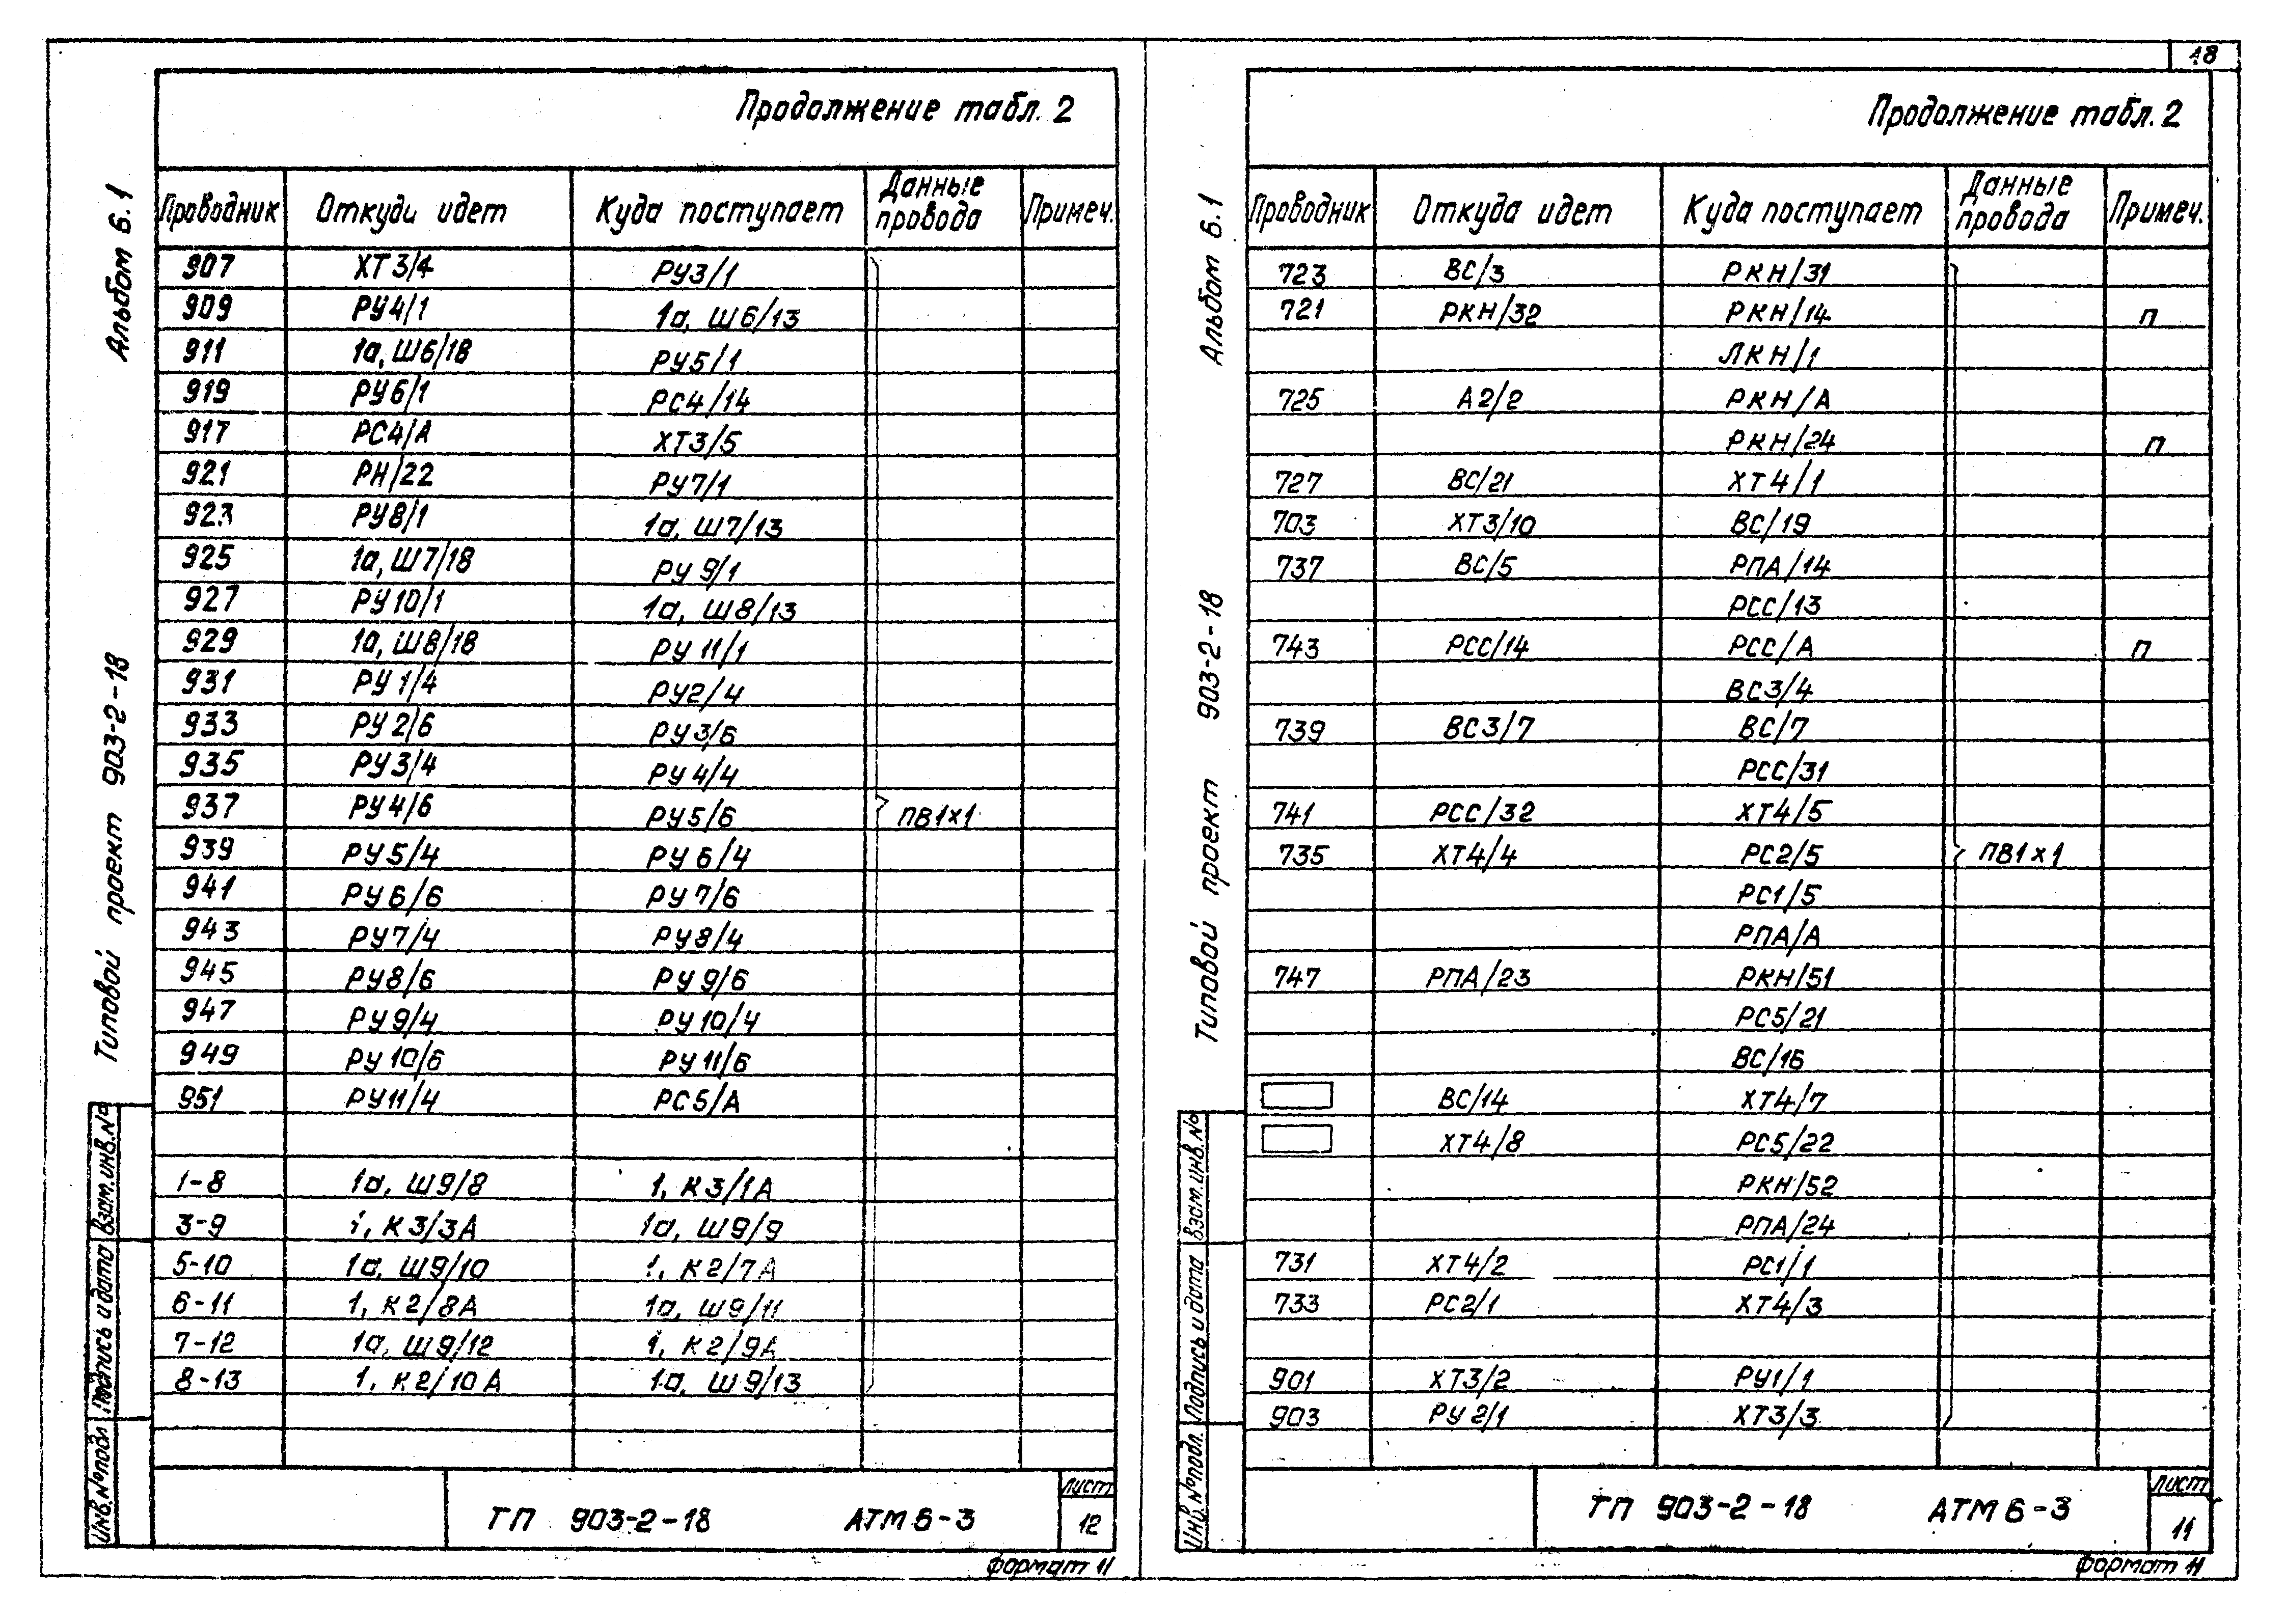 18
Продолжение табл. 2
Проводник Откуда идет Куда поступает Данные провода Примеч.
907 ХТ3/4 РУ3/1
909 РУ4/1 1а, Ш6/13
911 1а, Ш6/18 РУ5/1
919 РУ6/1 РС4/14
917 РС4/А ХТ3/5
921 РН/22 РУ7/1
923 РУ8/1 1а, Ш7/13
925 1а, Ш7/18 РУ9/1
927 РУ10/1 1а, Ш8/13
929 1а, Ш8/18 РУ11/1
931 РУ1/4 РУ2/4
933 РУ2/6 РУ3/6
935 РУ3/4 РУ4/4
937 РУ4/6 РУ5/6 ПВ1×1
939 РУ5/4 РУ6/4
941 РУ6/6 РУ7/6
943 РУ7/4 РУ8/4
945 РУ8/6 РУ9/6
947 РУ9/4 РУ10/4
949 РУ10/6 РУ11/6
951 РУ11/4 РС5/А
1-8 1а, Ш9/8 1, К3/1А
3-9 1, К3/3А 1а, Ш9/9
5-10 1а, Ш9/10 1, К2/7А
6-11 1, К2/8А 1а, Ш9/11
7-12 1а, Ш9/12 1, К2/9А
8-13 1, К2/10А 1а, Ш9/13
ТП 903-2-18 АТМ6-3
Лист
12
Формат 11
Альбом 6.1
Типовой проект 903-2-18
Взам.инв.№
Подпись и дата
Инв.№подл
Продолжение табл. 2
Проводник Откуда идет Куда поступает Данные провода Примеч.
723 ВС/3 РКН/31
721 РКН/32 РКН/14 п
ЛКН/1
725 А2/2 РКН/А
РКН/24 п
727 ВС/21 ХТ4/1
703 ХТ3/10 ВС/19
737 ВС/5 РПА/14
РСС/13
743 РСС/14 РСС/А п
ВС3/4
739 ВС3/7 ВС/7
РСС/31
741 РСС/32 ХТ4/5
735 ХТ4/4 РС2/5 ПВ1×1
РС1/5
РПА/А
747 РПА/23 РКН/51
РС5/21
ВС/16
ВС/14 ХТ4/7
ХТ4/8 РС5/22
РКН/52
РПА/24
731 ХТ4/2 РС1/1
733 РС2/1 ХТ4/3
901 ХТ3/2 РУ1/1
903 РУ2/1 ХТ3/3
ТП 903-2-18 АТМ6-3
Лист
11
Формат 11
Альбом 6.1
Типовой проект 903-2-18
Взам.инв.№
Подпись и дата
Инв.№подл.